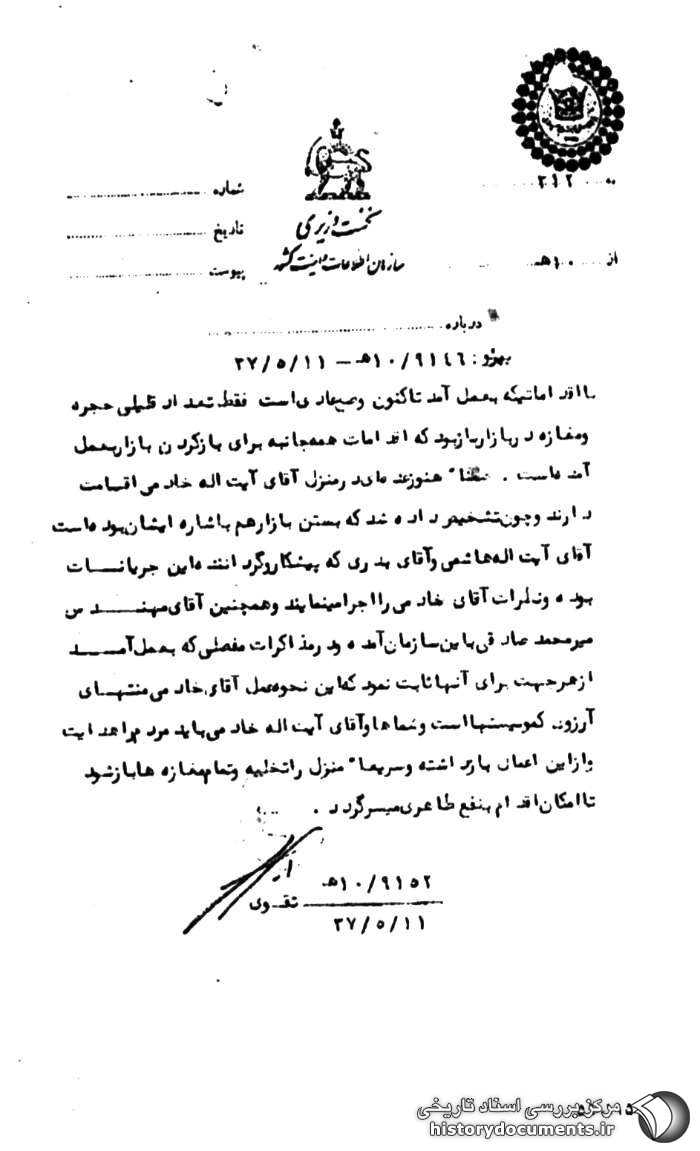 به ... ۳۱۲
شماره
نخست وزیری
تاریخ
سازمان اطلاعات و امنیت کشور
از ... ۱۰ هـ
پیوست
درباره
پیرو : ۱۰/۹۱۴۶هـ – ۳۷/۵/۱۱
با اقداماتیکه بعمل آمد تاکنون وضع عادی است فقط تعداد قلیلی حجره
ومغازه در بازار باز بود که اقدامات همه جانبه برای باز کردن بازار بعمل
آمده است . ضمنا" هنوز عده ای در منزل آقای آیت اله خادمی اقامت
دارند وچون تشخیص داده شد که بستن بازار هم باشاره ایشان بوده است
آقای آیت اله هاشمی وآقای بدری که پیشکار وگرداننده این جریانات
بوده ونظرات آقای خادمی را اجرا مینمایند وهمچنین آقای مهندس
میرمحمد صادقی باین سازمان آمده ودر مذاکرات مفصلی که بعمل آمد
از هر جهت برای آنها ثابت نمود که این نحوه عمل آقای خادمی منتهای
آرزوی کمونیستها است وشماها وآقای آیت اله خادمی باید مردم را هدایت
واز این اعمال بازداشته وسریعا" منزل را تخلیه وتمام مغازه ها باز شود
تا امکان اقدام بنفع طاهری میسر گردد .
۱۰/۹۱۵۲هـ
تقوی
۳۷/۵/۱۱
مرکز بررسی اسناد تاریخی
historydocuments.ir